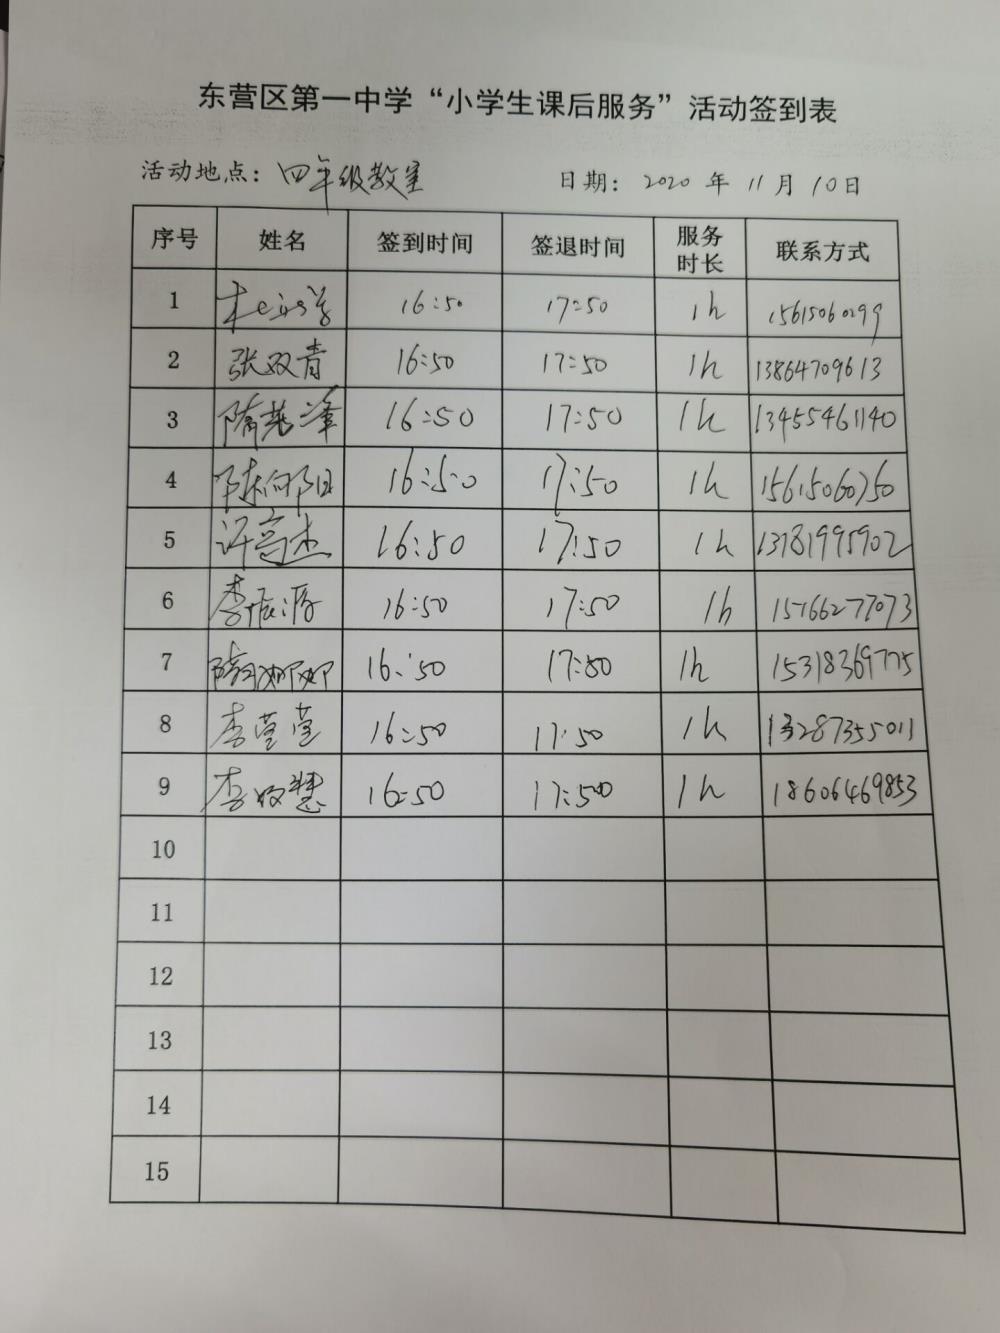 东营区第一中学“小学生课后服务”活动签到表
活动地点：四年级教室 日期：2020 年 11 月 10 日
序号 姓名 签到时间 签退时间 服务时长 联系方式
1 16:50 17:50 1h 15615060299
2 张双青 16:50 17:50 1h 13864709613
3 16:50 17:50 1h 13455461140
4 陈向阳 16:50 17:50 1h 15615060750
5 许高杰 16:50 17:50 1h 13781995902
6 李振源 16:50 17:50 1h 15166277073
7 隋娜娜 16:50 17:50 1h 15318369775
8 李莹莹 16:50 17:50 1h 13287355011
9 16:50 17:50 1h 18606469853
10
11
12
13
14
15